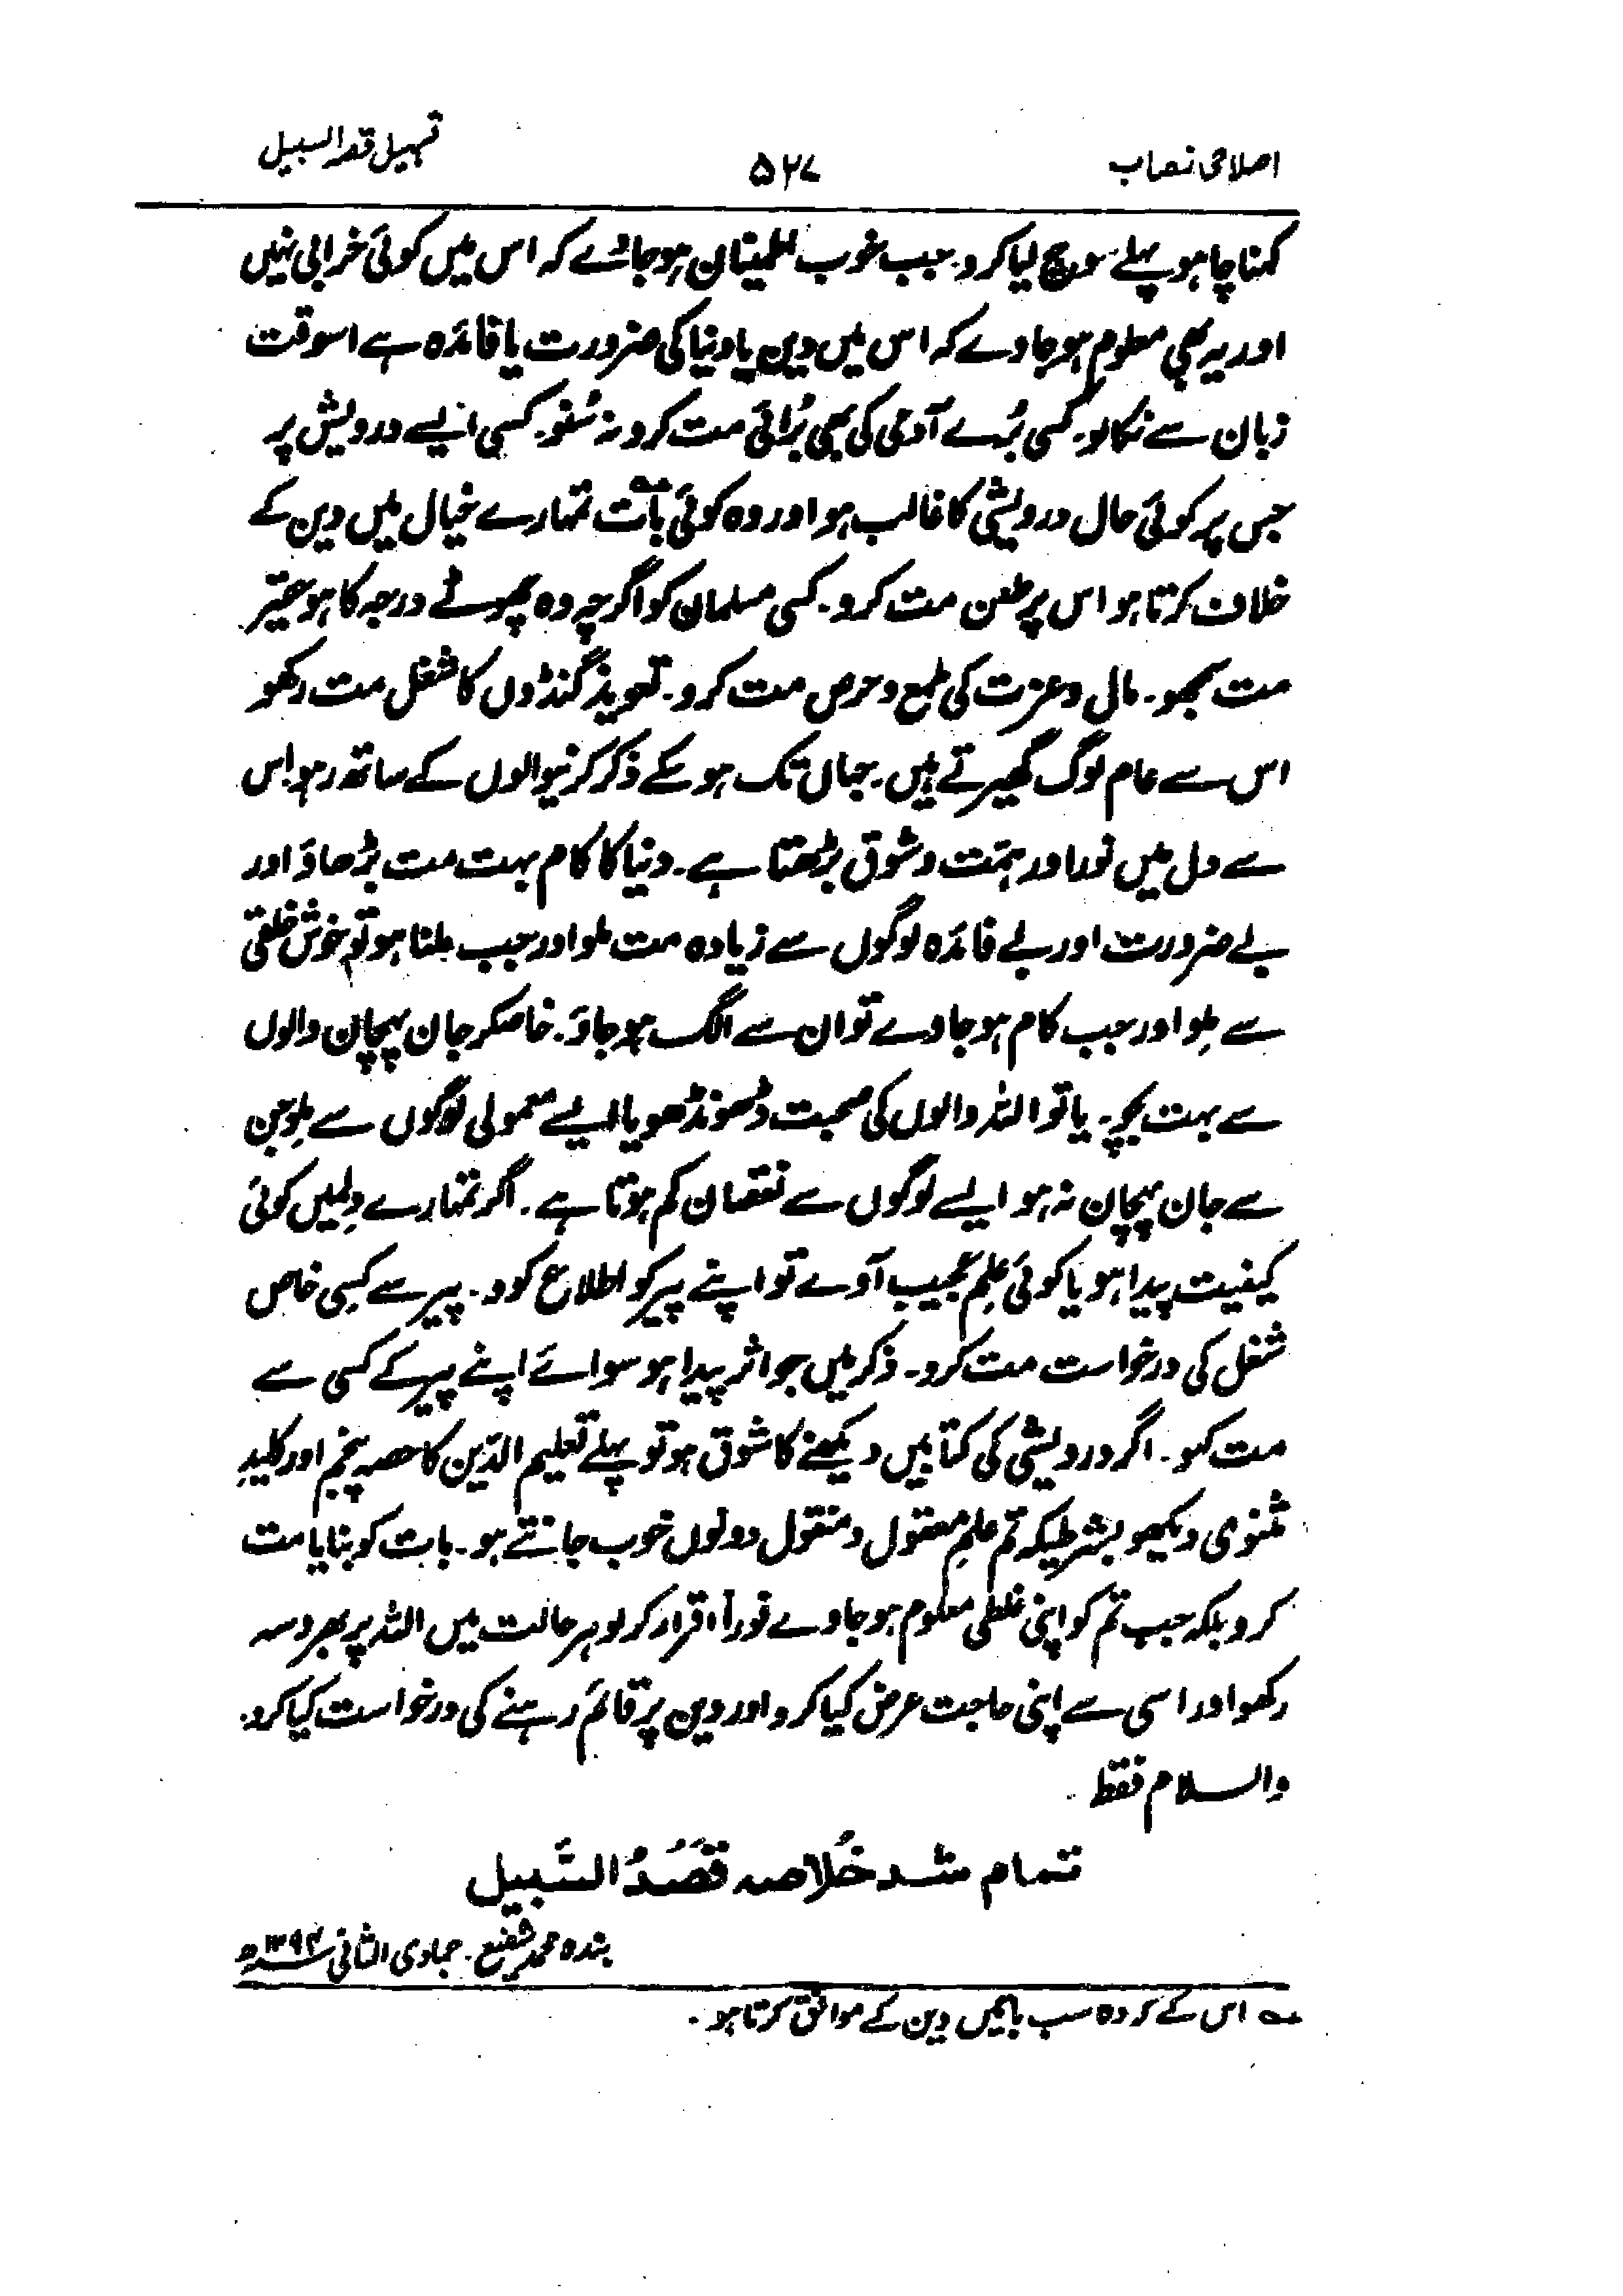 اصلاحی نصاب ۵۲۷ تسہیل قصد السبیل
کہنا چاہو پہلے سوچ لیا کرو۔ جب خوب اطمینان ہو جائے کہ اس میں کوئی خرابی نہیں
اور یہ بھی معلوم ہو جاوے کہ اس میں دین یا دنیا کی ضرورت یا فائدہ ہے اسوقت
زبان سے نکالو۔ کسی بُرے آدمی کی بھی بُرائی مت کرو نہ سُنو۔ کسی ایسے درویش پر
جس پر کوئی حال درویشی کا غالب ہو اور وہ کوئی بات تمہارے خیال میں دین کے
خلاف کرتا ہو اس پر طعن مت کرو۔ کسی مسلمان کو اگرچہ وہ چھوٹے درجہ کا ہو حقیر
مت سمجھو۔ مال و عزت کی طمع و حرص مت کرو۔ تعویذ گنڈوں کا شغل مت رکھو
اس سے عام لوگ گھیرتے ہیں۔ جہاں تک ہو سکے ذکر کرنیوالوں کے ساتھ رہو اس
سے دل میں نور اور ہمّت و شوق بڑھتا ہے۔ دنیا کا کام بہت مت بڑھاؤ اور
بے ضرورت اور بے فائدہ لوگوں سے زیادہ مت ملو اور جب ملنا ہو تو خوش خلقی
سے مِلو اور جب کام ہو جاوے تو ان سے الگ ہو جاؤ۔ خاصکر جان پہچان والوں
سے بہت بچو۔ یا تو اللہ والوں کی صحبت ڈھونڈھو یا ایسے معمولی لوگوں سے مِلو جن
سے جان پہچان نہ ہو ایسے لوگوں سے نقصان کم ہوتا ہے۔ اگر تمہارے دِلمیں کوئی
کیفیت پیدا ہو یا کوئی عِلم عجیب آوے تو اپنے پیر کو اطلاع کرو۔ پیر سے کسِی خاص
شغل کی درخواست مت کرو۔ ذکر میں جو اثر پیدا ہو سوائے اپنے پیر کے کسی سے
مت کہو۔ اگر درویشی کی کتابیں دیکھنے کا شوق ہو تو پہلے تعلیم الدّین کا حصہ پنجم اور کلیدِ
مثنوی دیکھو بشرطیکہ تم علمِ معقول و منقول دونوں خوب جانتے ہو۔ بات کو بنایا مت
کرو بلکہ جب تم کو اپنی غلطی معلوم ہو جاوے فوراً اقرار کر لو ہر حالت میں اللہ پر بھروسہ
رکھو اور اسی سے اپنی حاجت عرض کیا کرو اور دین پر قائم رہنے کی درخواست کیا کرو۔
والسلام فقط
تمام شد خُلاصہ قَصَدُ السَّبیل
بندہ محمد شفیع۔ جمادی الثانی ۱۳۹۴ھ
اس کے کہ وہ سب باتیں دین کے موافق کرتا ہو۔